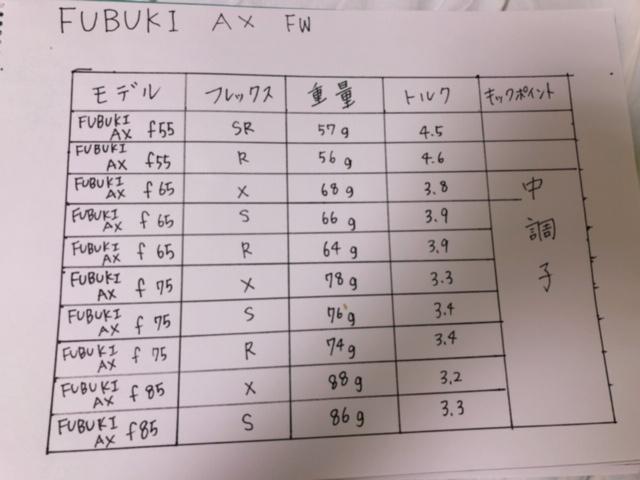 FUBUKI AX FW
モデル フレックス 重量 トルク キックポイント
FUBUKI AX f55 SR 57g 4.5
FUBUKI AX f55 R 56g 4.6
FUBUKI AX f65 X 68g 3.8 中調子
FUBUKI AX f65 S 66g 3.9
FUBUKI AX f65 R 64g 3.9
FUBUKI AX f75 X 78g 3.3
FUBUKI AX f75 S 76g 3.4
FUBUKI AX f75 R 74g 3.4
FUBUKI AX f85 X 88g 3.2
FUBUKI AX f85 S 86g 3.3